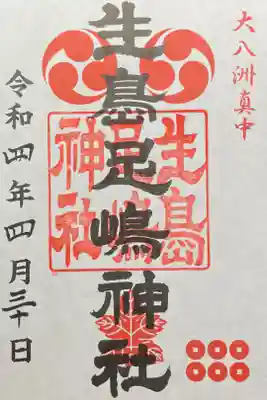 大八洲真中
生島足嶋神社
生島足嶋神社
令和四年四月三十日